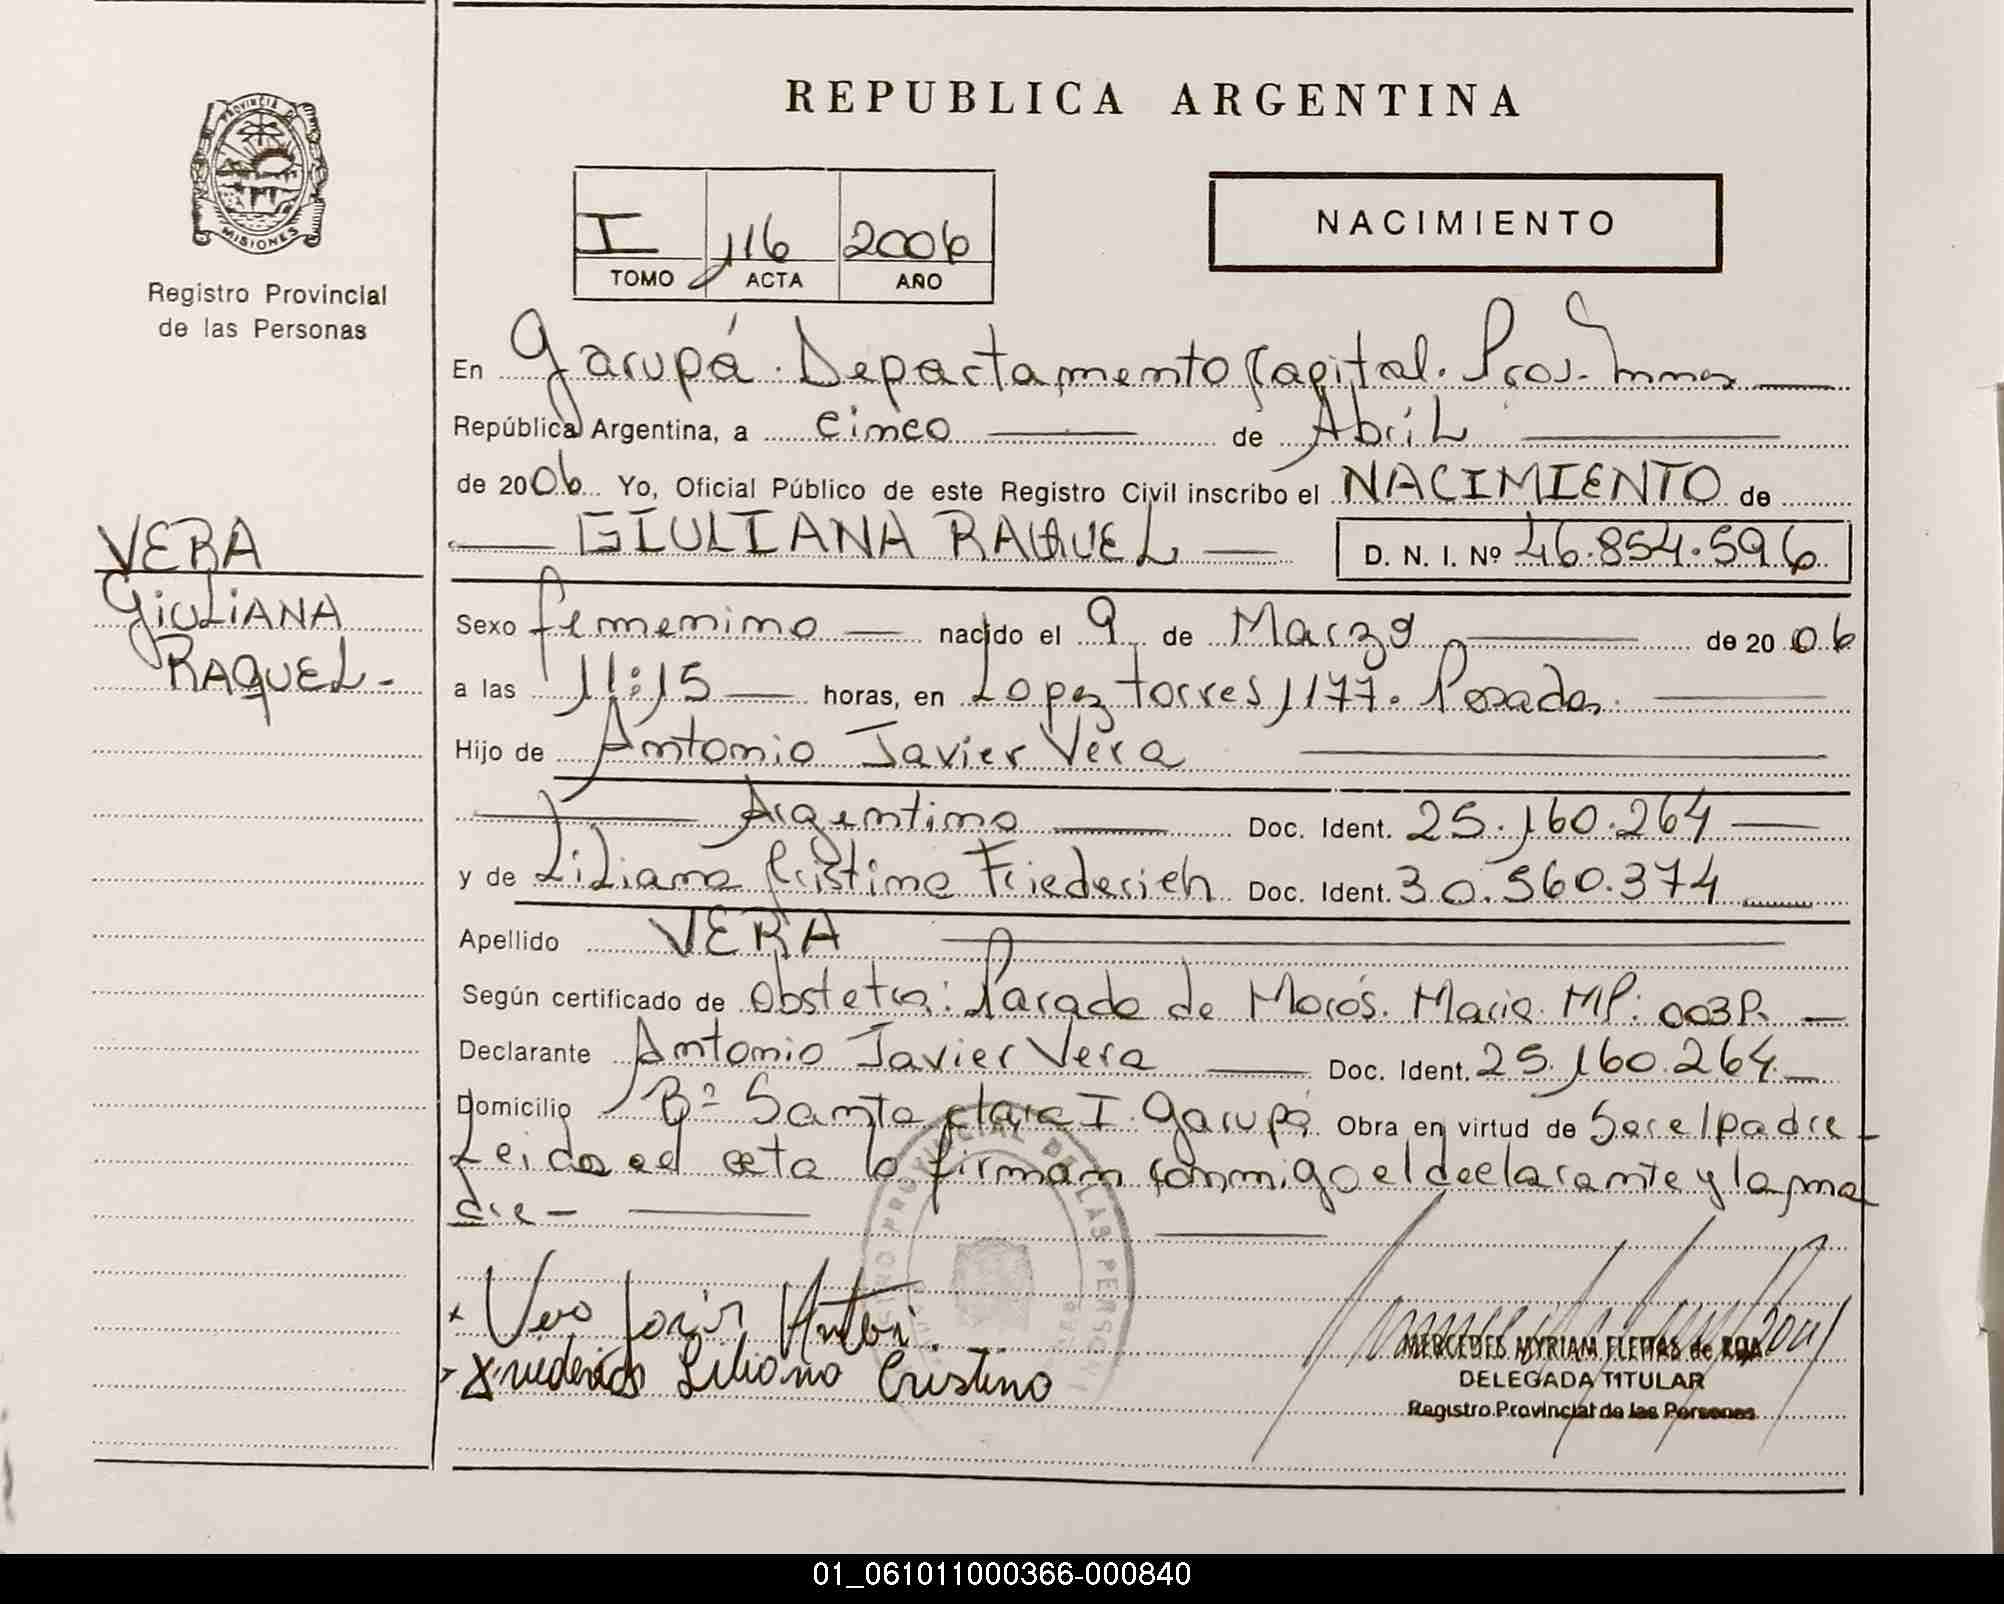 REPUBLICA ARGENTINA
PROVINCIA DE
MISIONES
Registro Provincial
de las Personas
I 116 2006
TOMO ACTA AÑO
NACIMIENTO
En Garupá. Departamento Capital. Prov. Mnes
República Argentina, a cinco de Abril
de 2006 Yo, Oficial Público de este Registro Civil inscribo el NACIMIENTO de
GIULIANA RAQUEL D. N. I. Nº 46.854.596
VERA
GIULIANA
RAQUEL-
Sexo femenino nacido el 9 de Marzo de 2006
a las 11:15 horas, en Lopez torres 1177. Posadas.
Hijo de Antonio Javier Vera
Argentino Doc. Ident. 25.160.264
y de Liliana Cristina Friederich Doc. Ident. 30.560.374
Apellido VERA
Según certificado de Obstetra: Parada de Morós. Maria. MP: 003P.
Declarante Antonio Javier Vera Doc. Ident. 25.160.264.
Domicilio Bº Santa clara I. Garupá Obra en virtud de Ser el padre-
Leida el acta la firman conmigo el declarante y la ma
dre-
REGISTRO PROVINCIAL DE LAS PERSONAS
x Vera Javier
Liliana Cristina
MERCEDES MYRIAM FLEITAS de ROA
DELEGADA TITULAR
Registro Provincial de las Personas
01_061011000366-000840